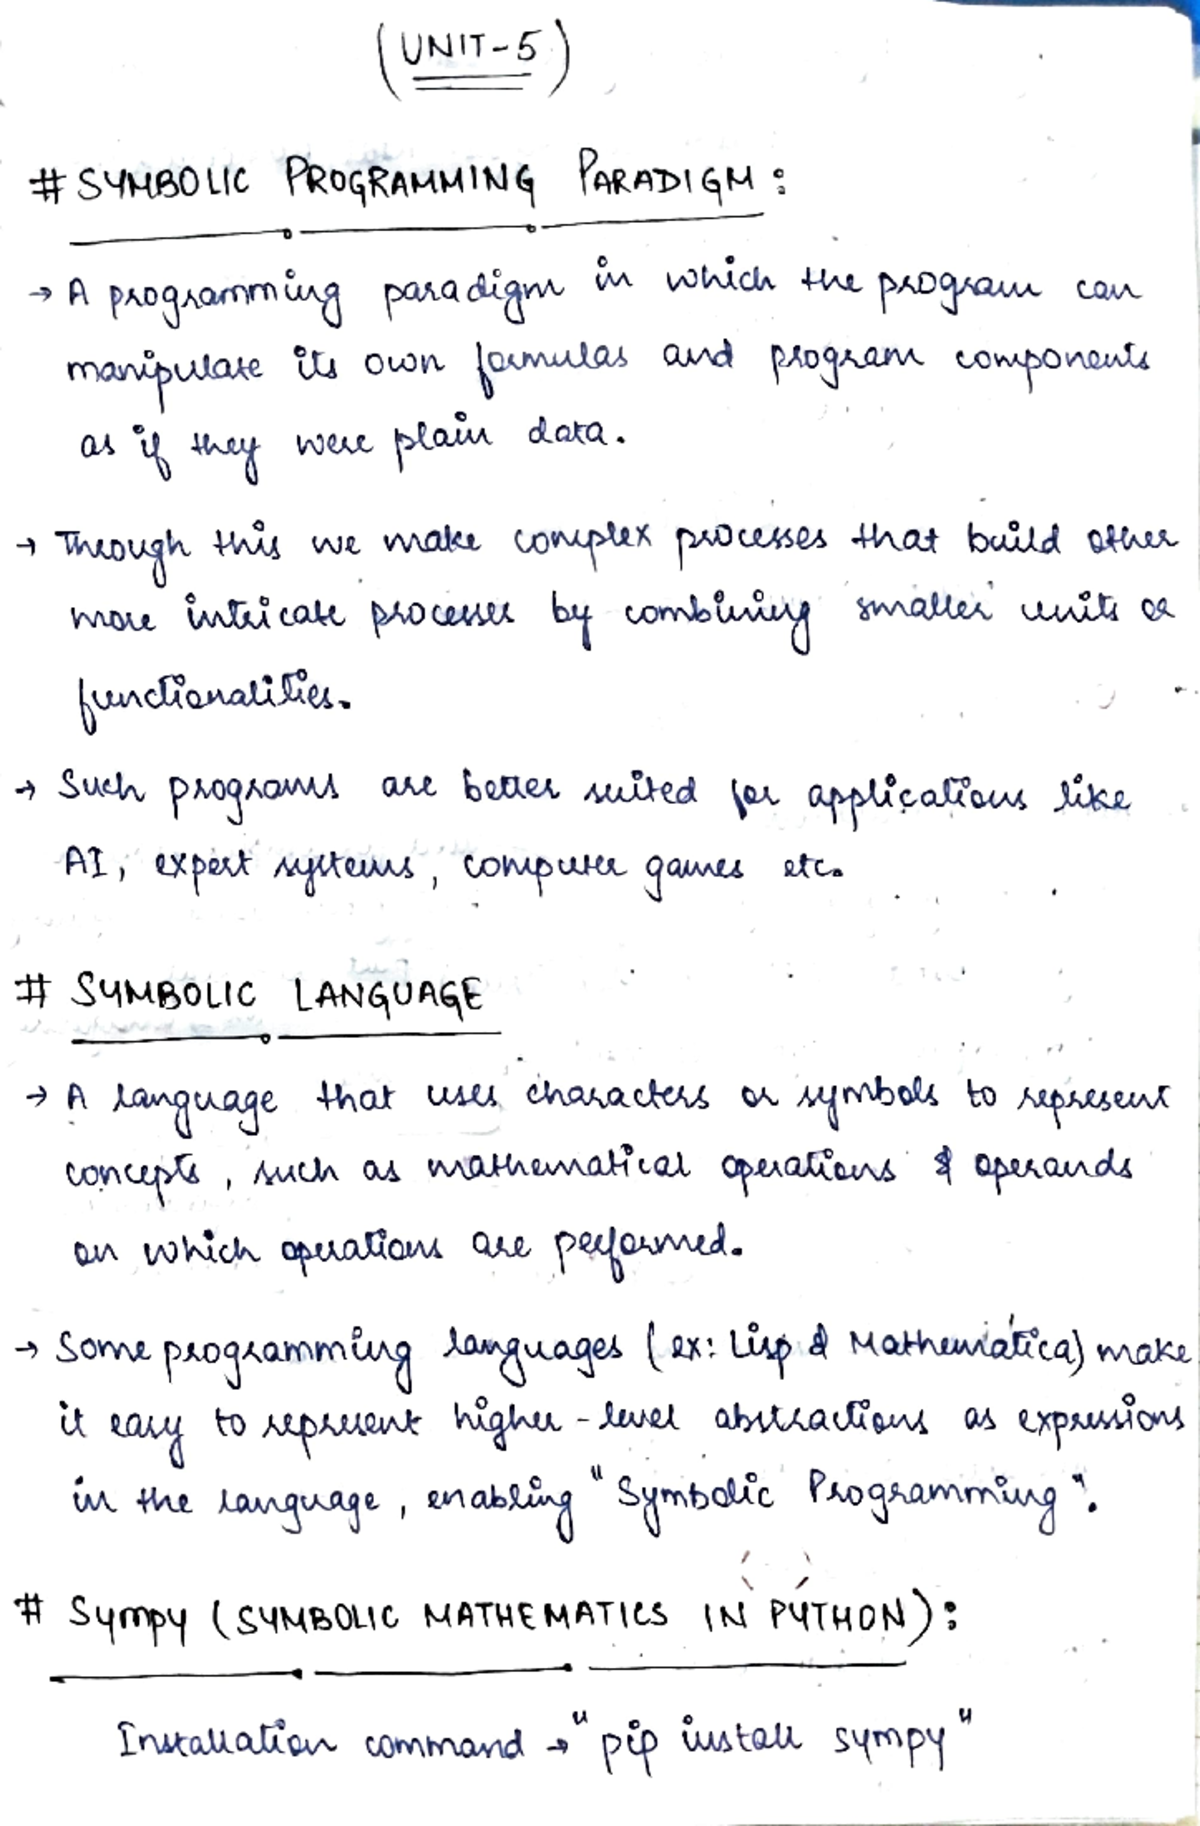 (UNIT-5)
# SYMBOLIC PROGRAMMING PARADIGM:
→ A programming paradigm in which the program can
manipulate its own formulas and program components
as if they were plain data.
→ Through this we make complex processes that build other
more intricate processes by combining smaller units or
functionalities.
→ Such programs are better suited for applications like
AI, expert systems, computer games etc.
# SYMBOLIC LANGUAGE
→ A language that uses characters or symbols to represent
concepts, such as mathematical operations & operands
on which operations are performed.
→ Some programming languages (ex: Lisp & Mathematica) make
it easy to represent higher-level abstractions as expressions
in the language, enabling "Symbolic Programming".
# Sympy (SYMBOLIC MATHEMATICS IN PYTHON):
Installation command → "pip install sympy"